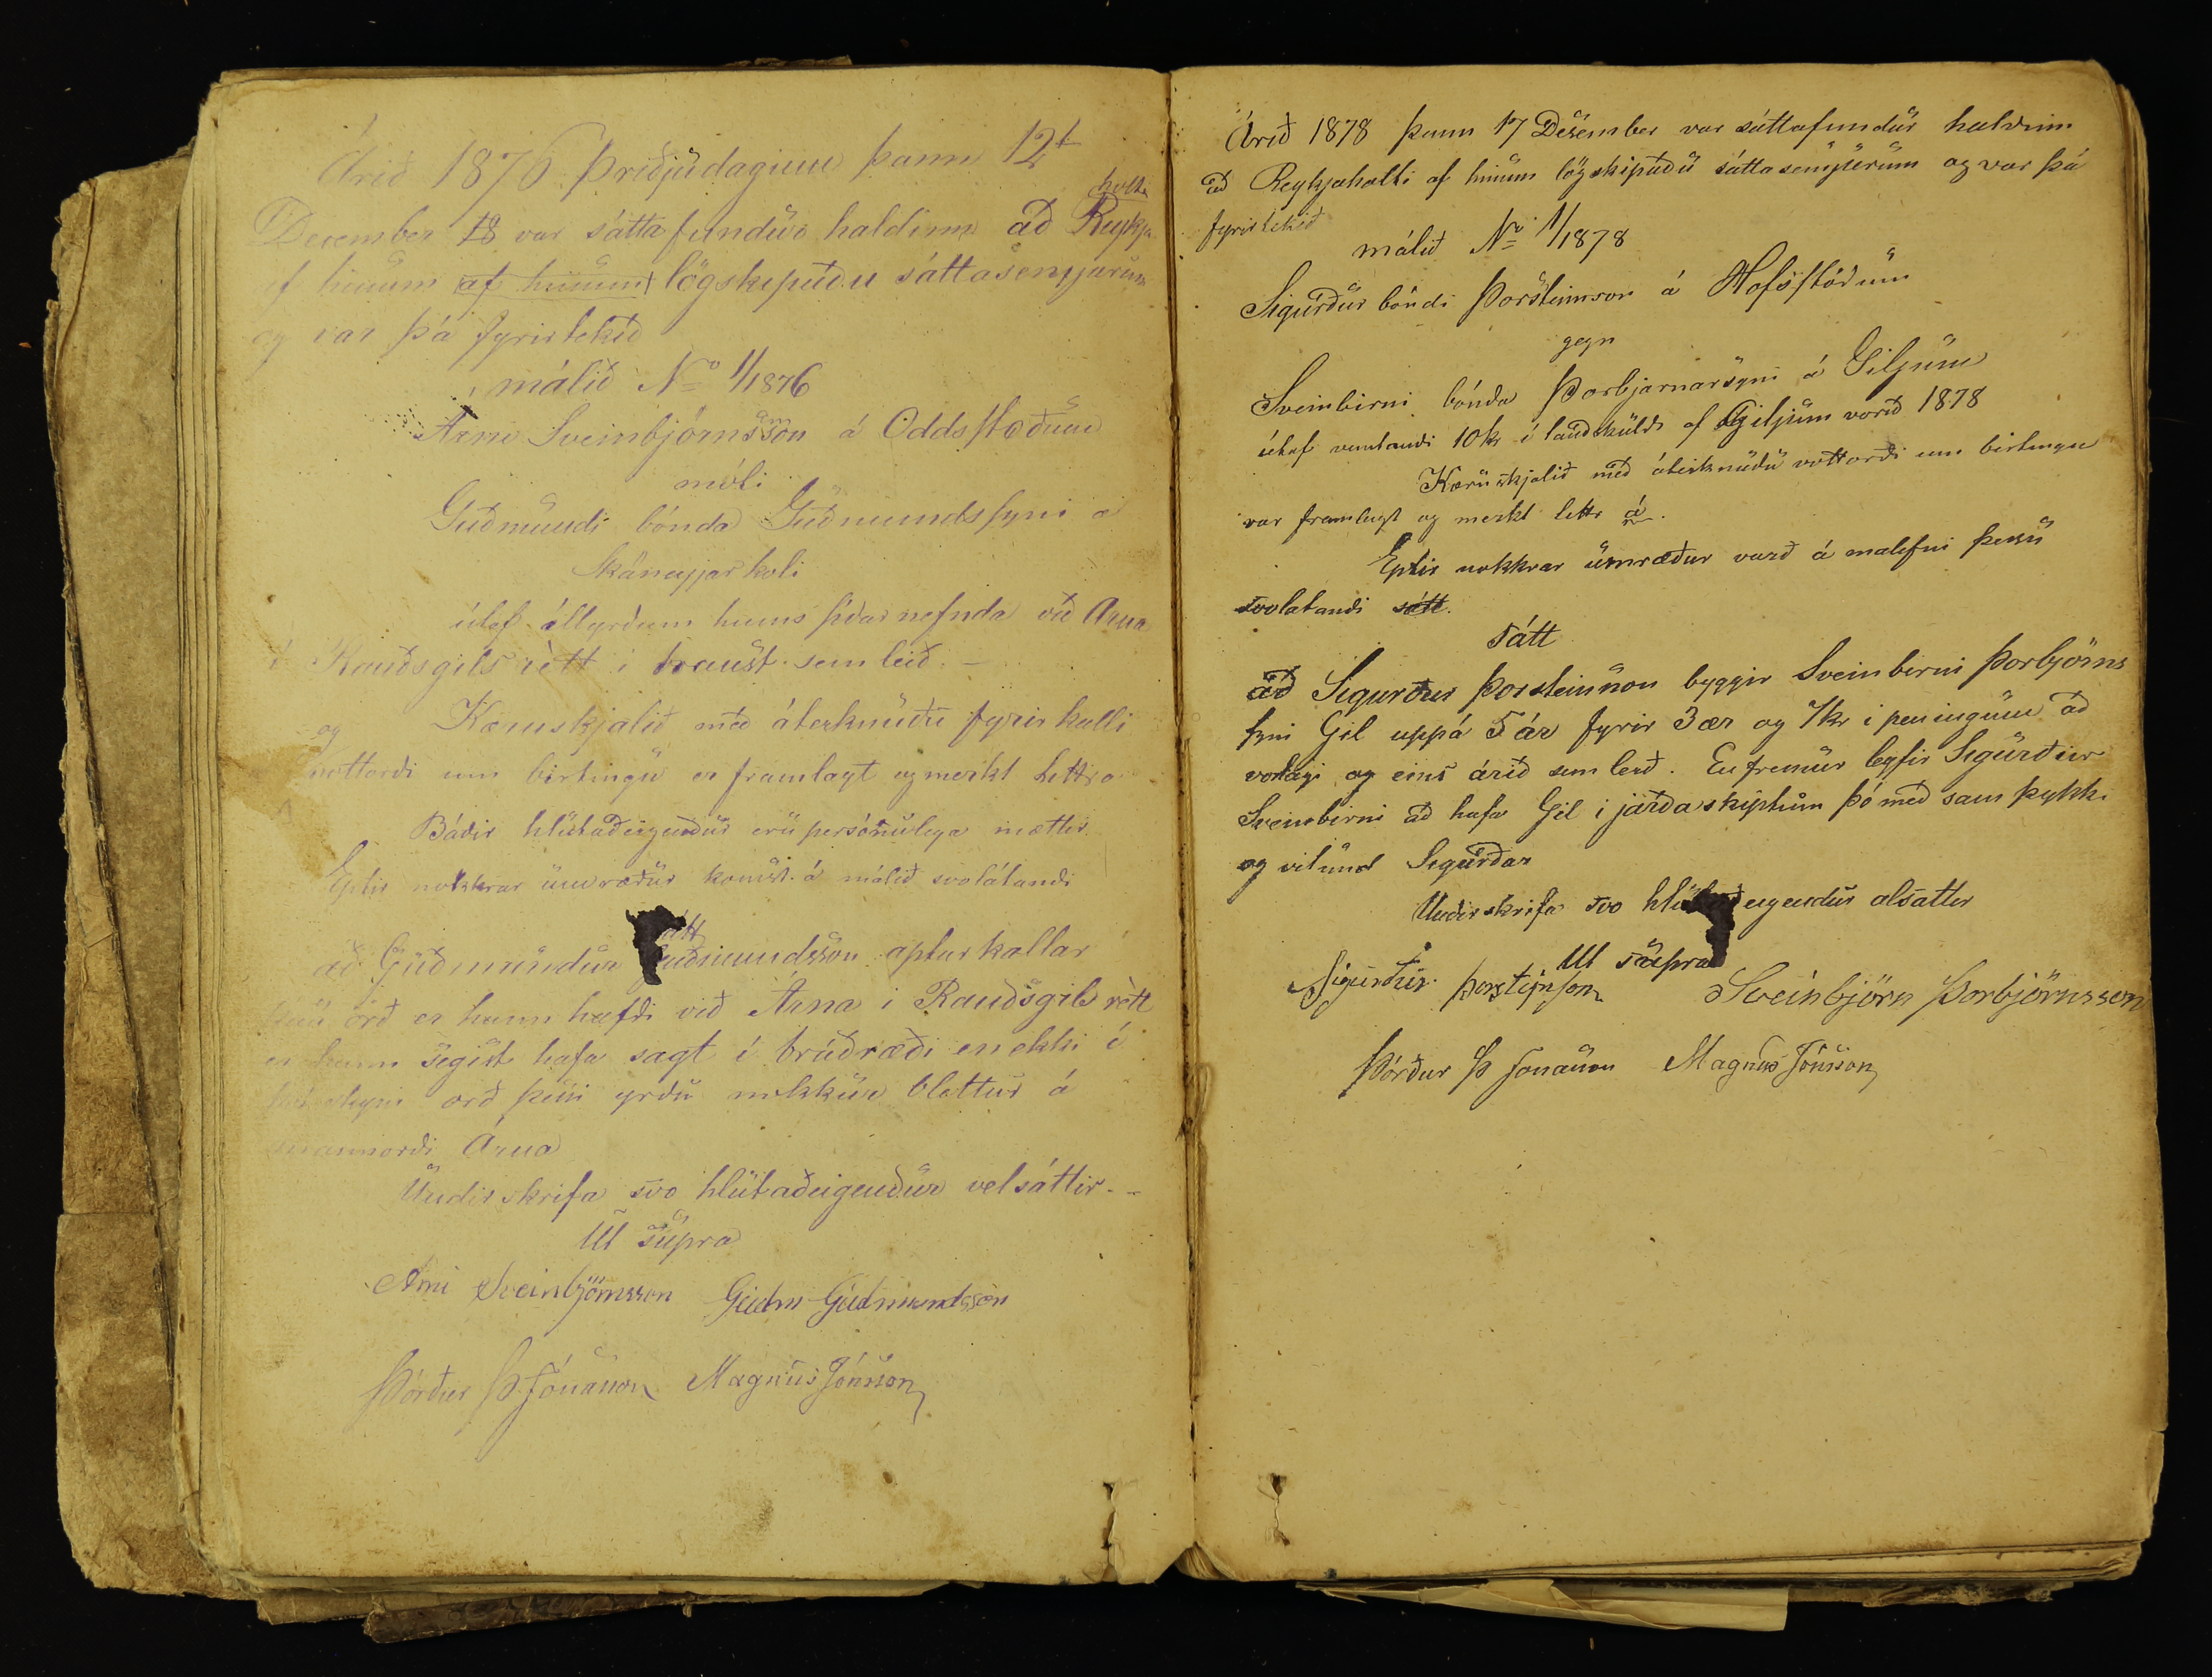 Árið 1876 Þriðjudaginn þann 12t
December 18 var sáttafundur haldinn að Reykja
holti
af hinum af hinum lögskipuðu sáttasemjurum
og var þá fyrirtekið
málið No 1/1876
Árni Sveinbjörnsson á Oddsstöðum
móti
Guðmundi bónda Guðmundssyni á
Skáneyjarkoti
útaf illyrðum hins síðarnefnda við Árna
í Rauðsgilsrètt í haust sem leið. –
Kæruskjalið með áteiknuðu fyrirkalli
og
vottorði um birtingu er framlagt og merkt Littra
Báðir hlutaðeigendur eru persónulega mættir
Eptir nokkrar umræður komst á málið svolátandi
átt
að Guðmundur Guðmundsson apturkallar
þau orð er hann hafði við Árna i Rauðsgilsrètt
er hann segist hafa sagt í bráðræði en ekki í
því skyni orð þessi yrðu nokkur blettur á
mannorði Árna
Undirskrifa svo hlutaðeigendur velsáttir. –
Ut supra
Arni Sveinbjörnsson Guðm Guðmundsson
Þórður Þ Jónsson Magnús Jónsson
Árið 1878 þann 17 Desember var sáttafundur haldinn
að Reykjaholti af hinum lögskipuðu sáttasemjurum og var þá
fyrirtekið
málið No 1/1878
Sigurður bóndi Þorsteinsson á Hofsstöðum
gegn
Sveinbirni bónda Þorbjarnarsyni á Giljum
útaf vantandi 10 kr í landskuld af Giljum vorið 1878
Kæruskjalið með áteiknuðu vottorði um birtingu
var framlagt og merkt lettr á.
Eptir nokkrar umræður varð á málefni þessu
svolatandi sátt.
sátt
að Sigurður Þorsteinsson byggir Sveinbirni Þorbjörns
syni Gil uppá 5 ár fyrir 3 ær og 7 kr i peningum að
vorlagi og eins árið sem leið. Enfremur leyfir Sigurður
Sveinbirni að hafa Gil i jarðaskiptum þó með samþykki
og vitund Sigurðar
Undirskrifa svo hlutaðeigendur alsattir
Ut supra
Sigurður Þorsteinsson Sveinbjörn Þorbjörnsson
Þórður Þ Jonsson Magnús Jónsson